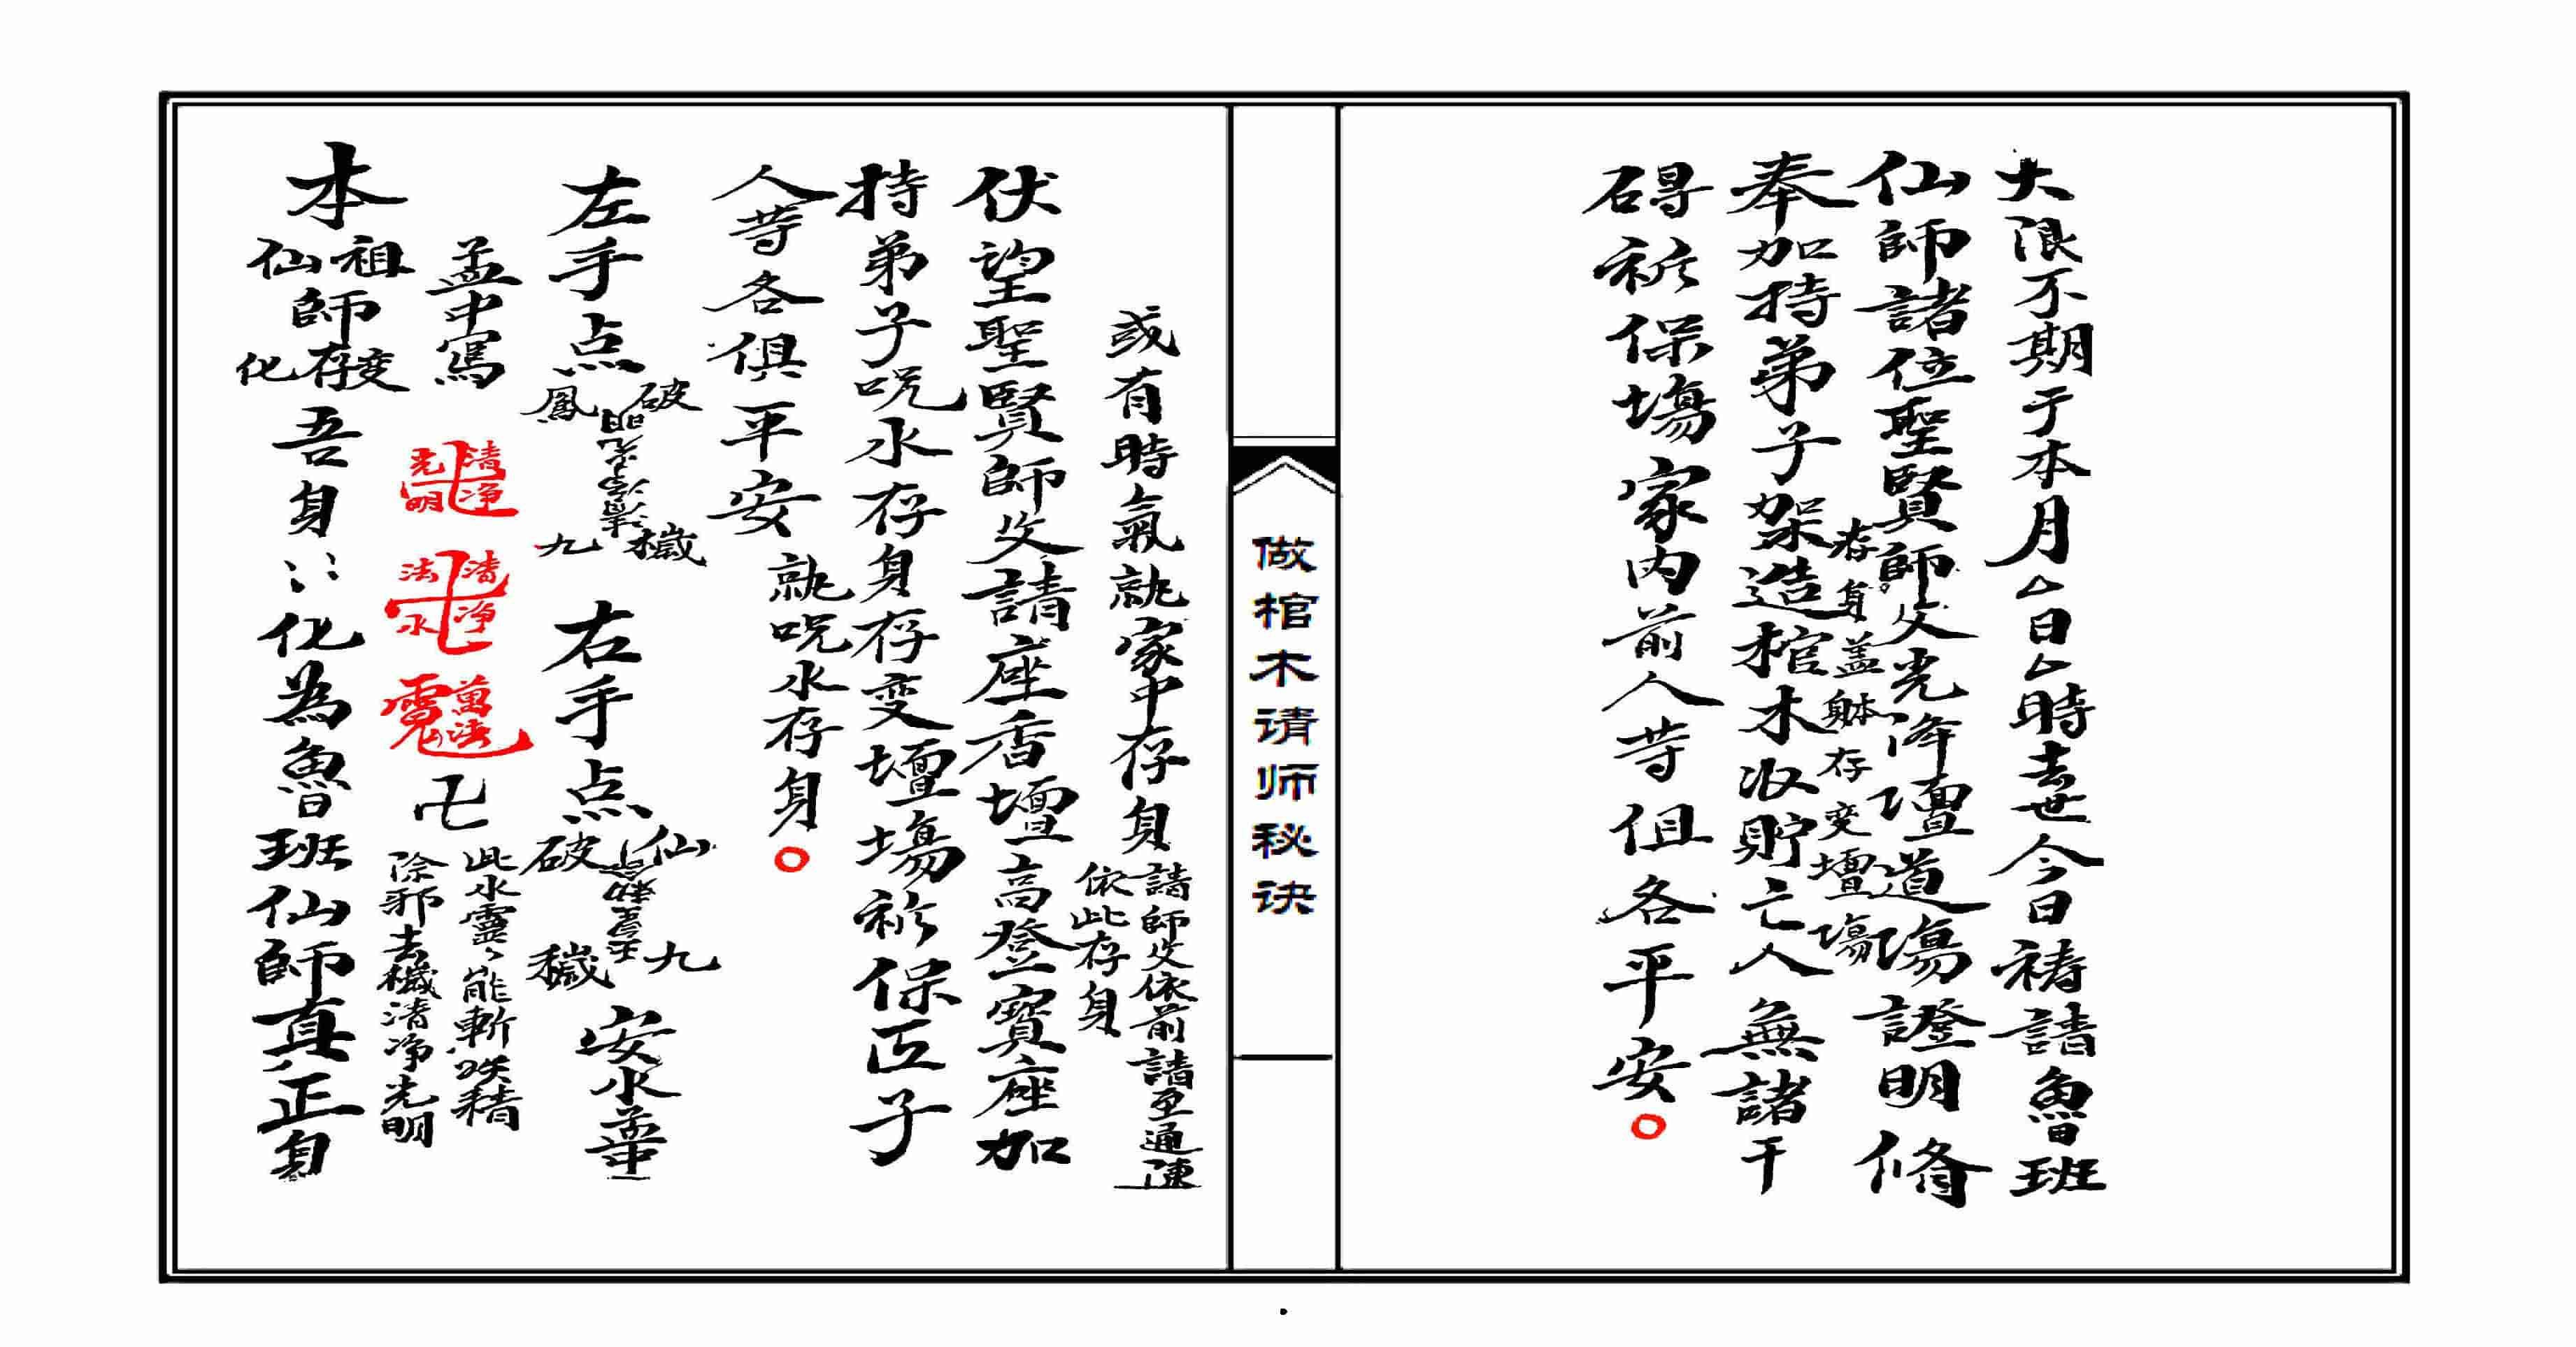 大限不期于本月厶日厶時去世今日禱請魯班
仙師諸位聖賢師父光降壇道場證明修
存身盖躰存变壇場
奉加持弟子架造棺木收貯亡人無諸干
碍祈保塲家内前人等俱各平安
做棺木请师秘诀
或有時氣就家中存身
請師父依前請至通陳
依此存身
伏望聖賢師父請座香壇高登寶座加
持弟子呪水存身存变壇塲祈保匠子
人等各俱平安
就呪水存身
左手点
破
鳳
穢
九
右手点
仙
破
九
穢
安水
盂中寫
清净
光明
清净
法水
萬法
卍
此水靈〻能斬妖精
除邪去穢清净光明
本
祖
仙
師
存变
化
吾身〻〻化為魯班仙師真正身